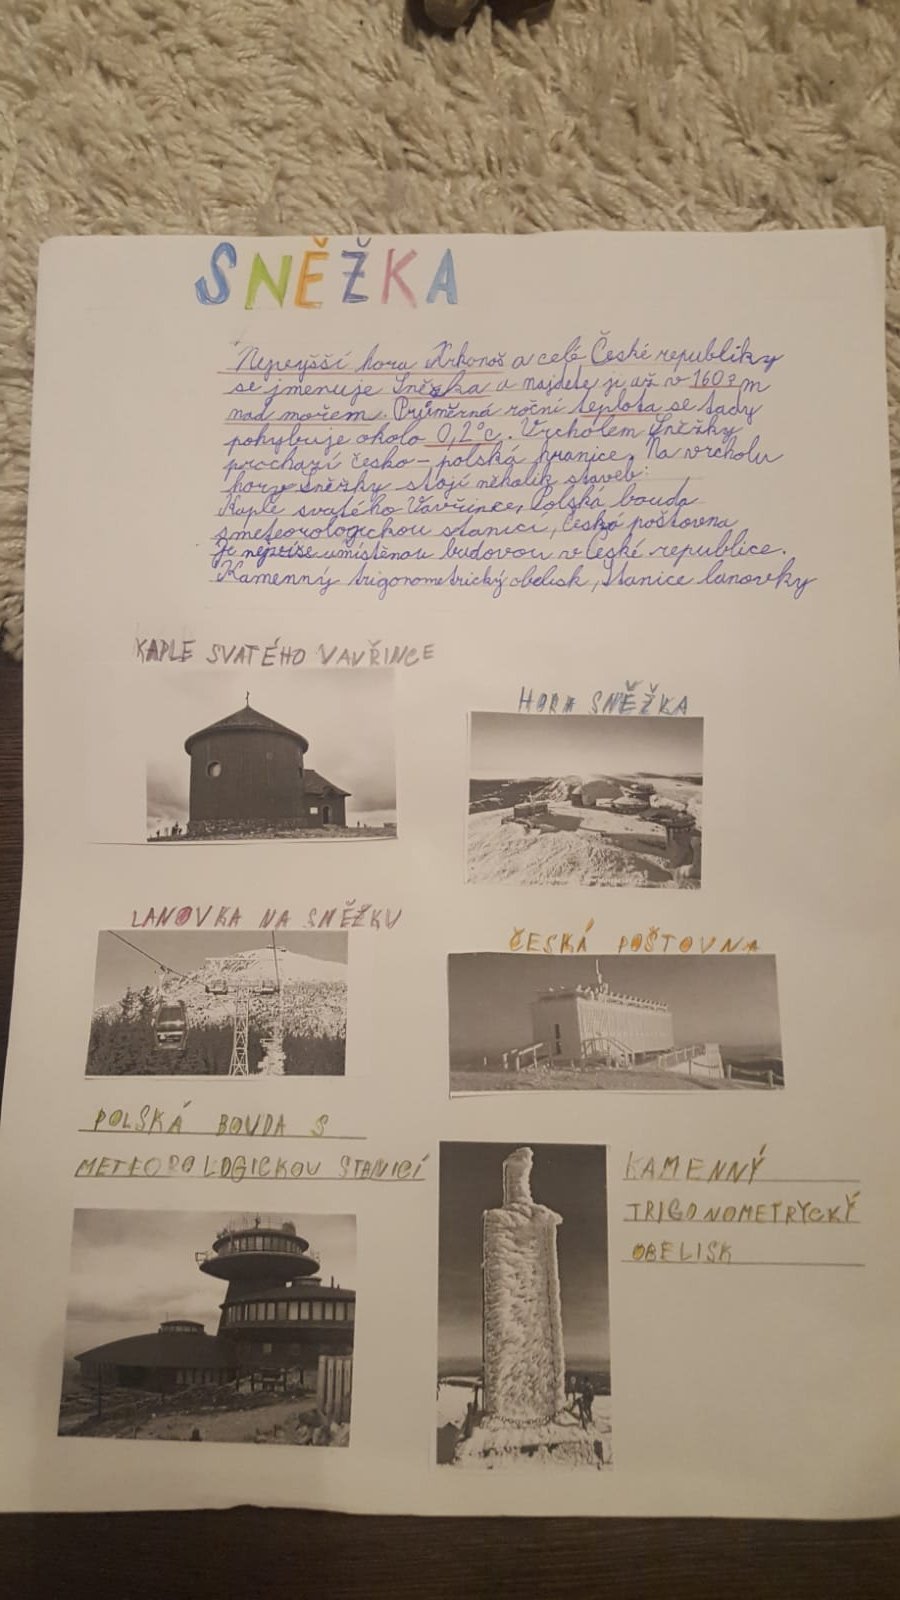 SNĚŽKA
Nejvyšší hora Krkonoš a celé České republiky
se jmenuje Sněžka a najdete ji až v 1607 m
nad mořem. Průměrná roční teplota se tady
pohybuje okolo 0,2°c. Vrcholem Sněžky
prochazí česko-polská hranice. Na vrcholu
hory Sněžky stojí několik staveb:
Kaple svatého Vavřince, Polská bouda
s meteorologickou stanicí, Česká poštovna
je nejvíše umístěnou budovou v České republice.
Kamenný trigonometrický obelisk, Stanice lanovky
KAPLE SVATÉHO VAVŘINCE
HORA SNĚŽKA
LANOVKA NA SNĚŽKU
ČESKÁ POŠTOVNA
POLSKÁ BOUDA S
METEOROLOGICKOU STANICÍ
KAMENNÝ
TRIGONOMETRYCKÝ
OBELISK